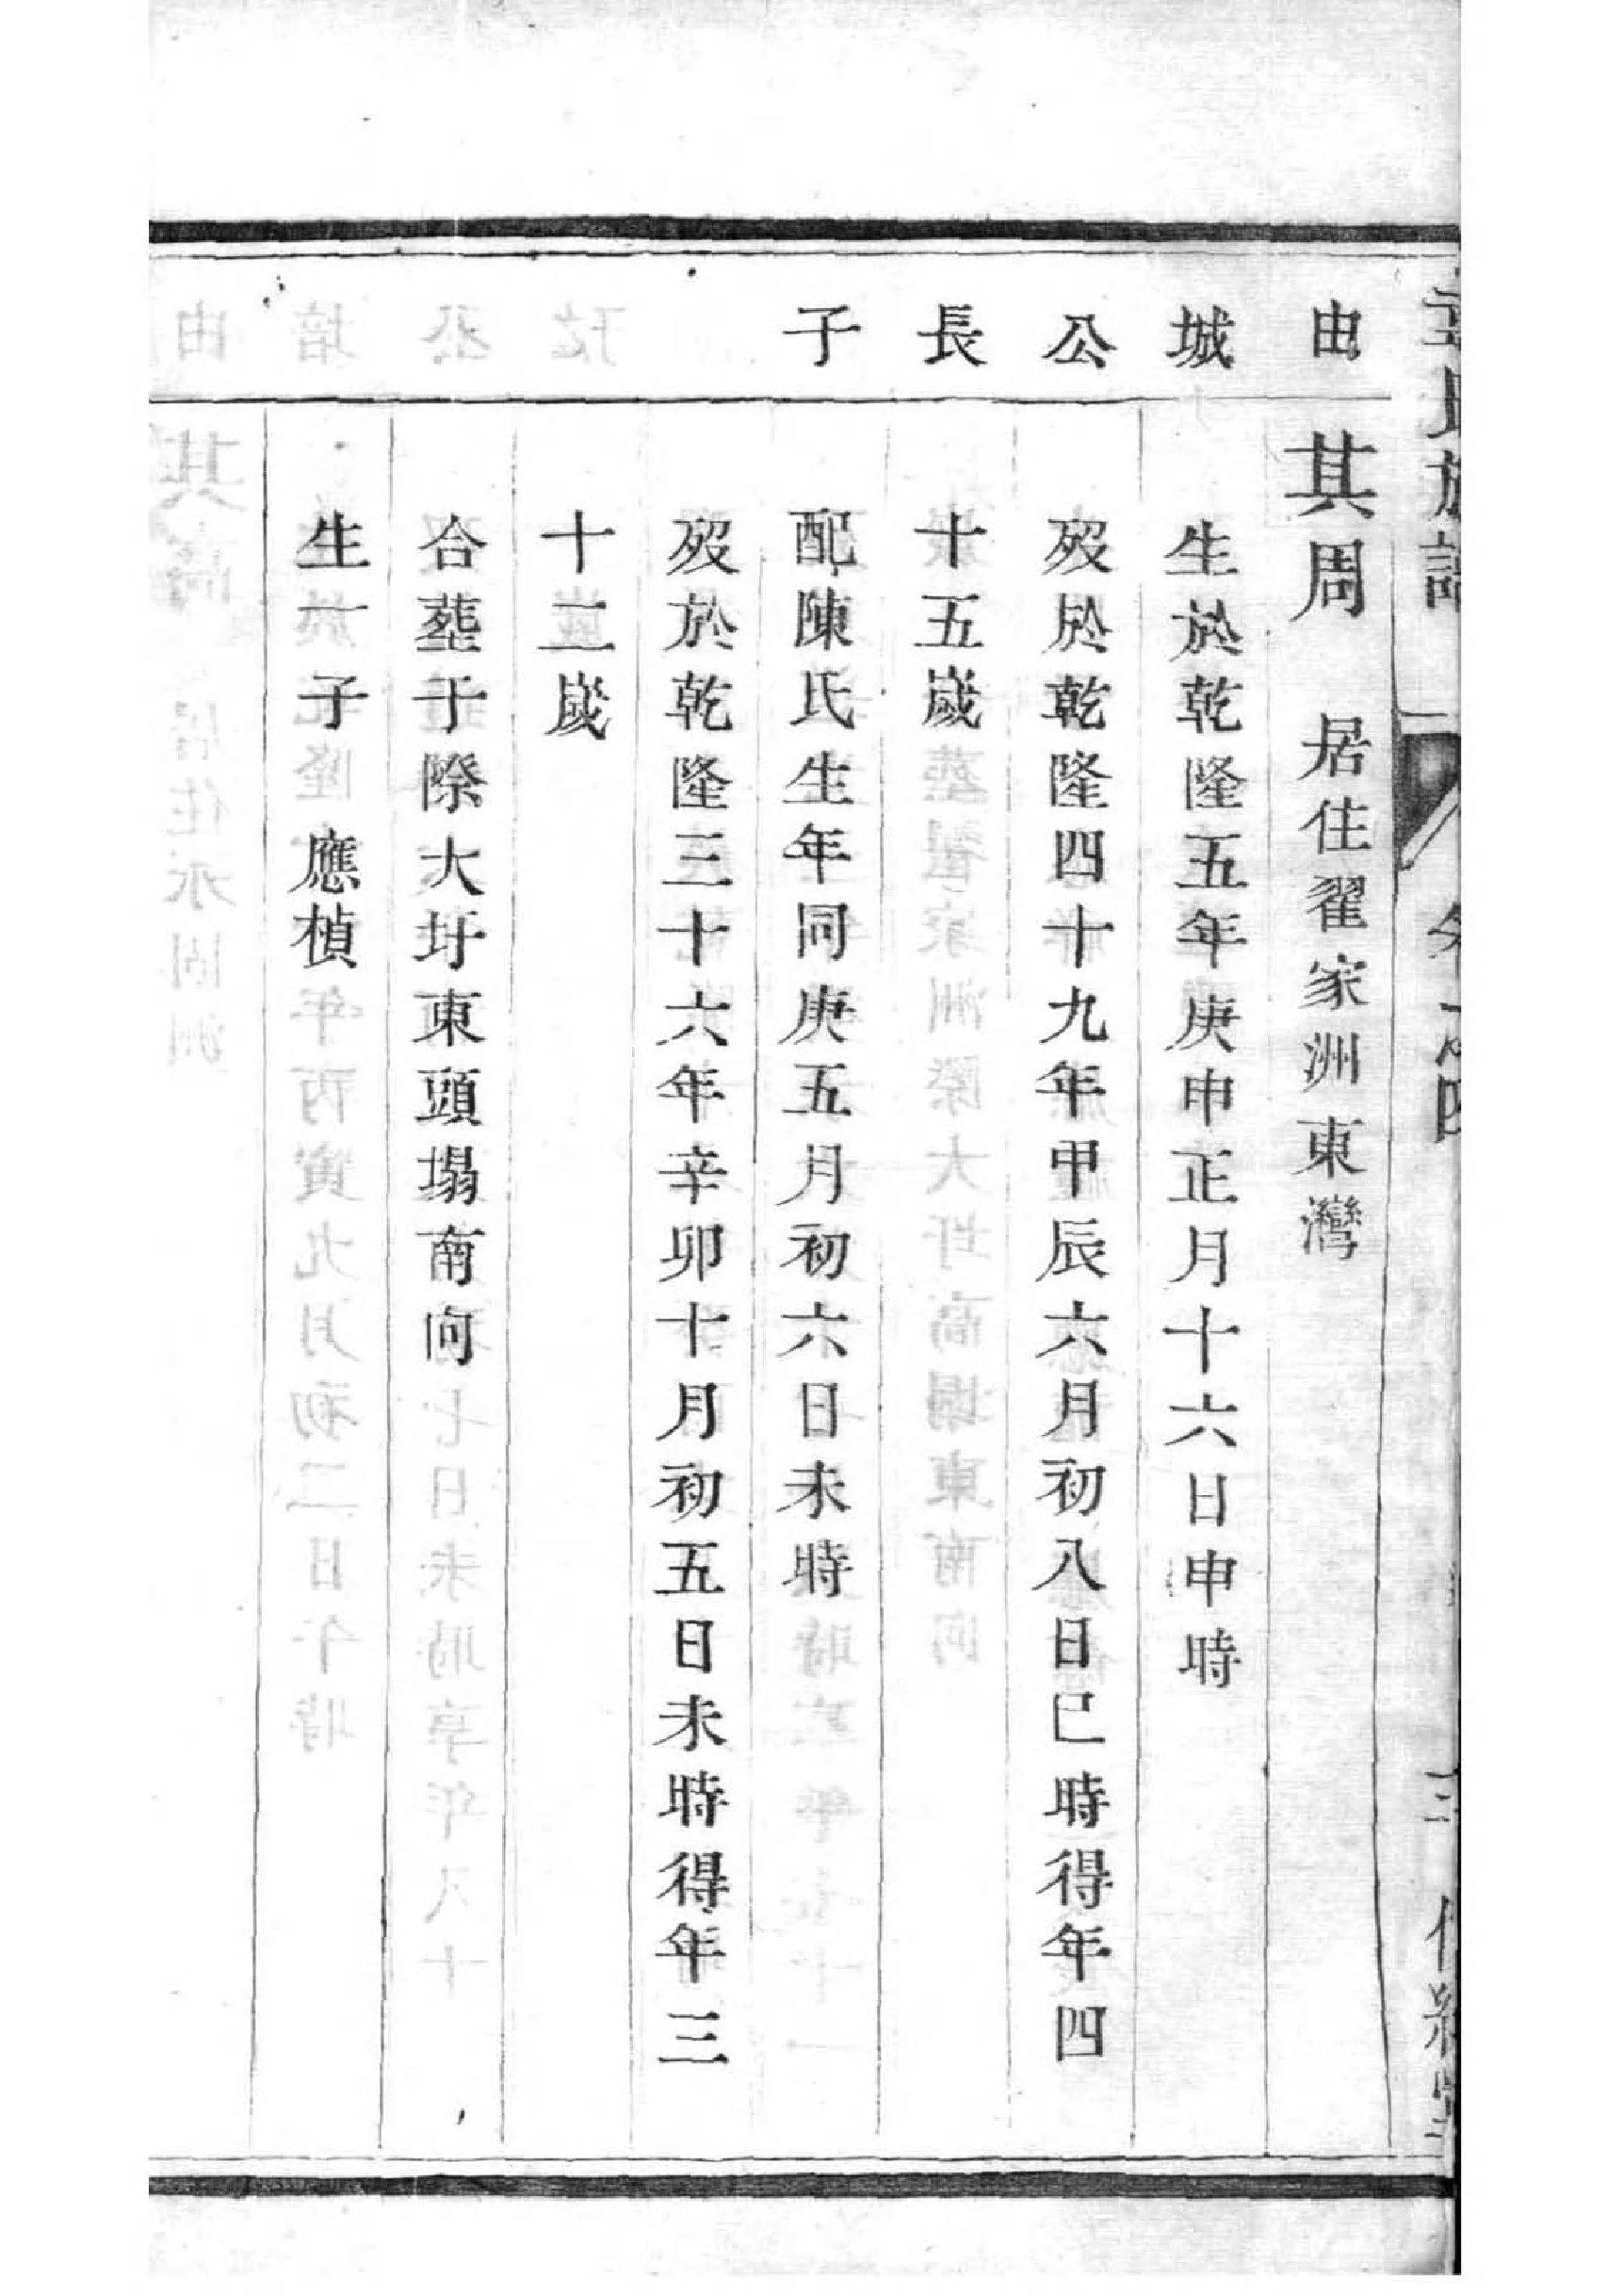 由城公長子
其周　居住翟家洲東灣
生於乾隆五年庚申正月十六日申時
歿於乾隆四十九年甲辰六月初八日巳時得年四
十五歲
配陳氏生年同庚五月初六日未時
歿於乾隆三十六年辛卯十月初五日未時得年三
十二歲
合葬于際大圩東頭塌南向
生一子　應楨